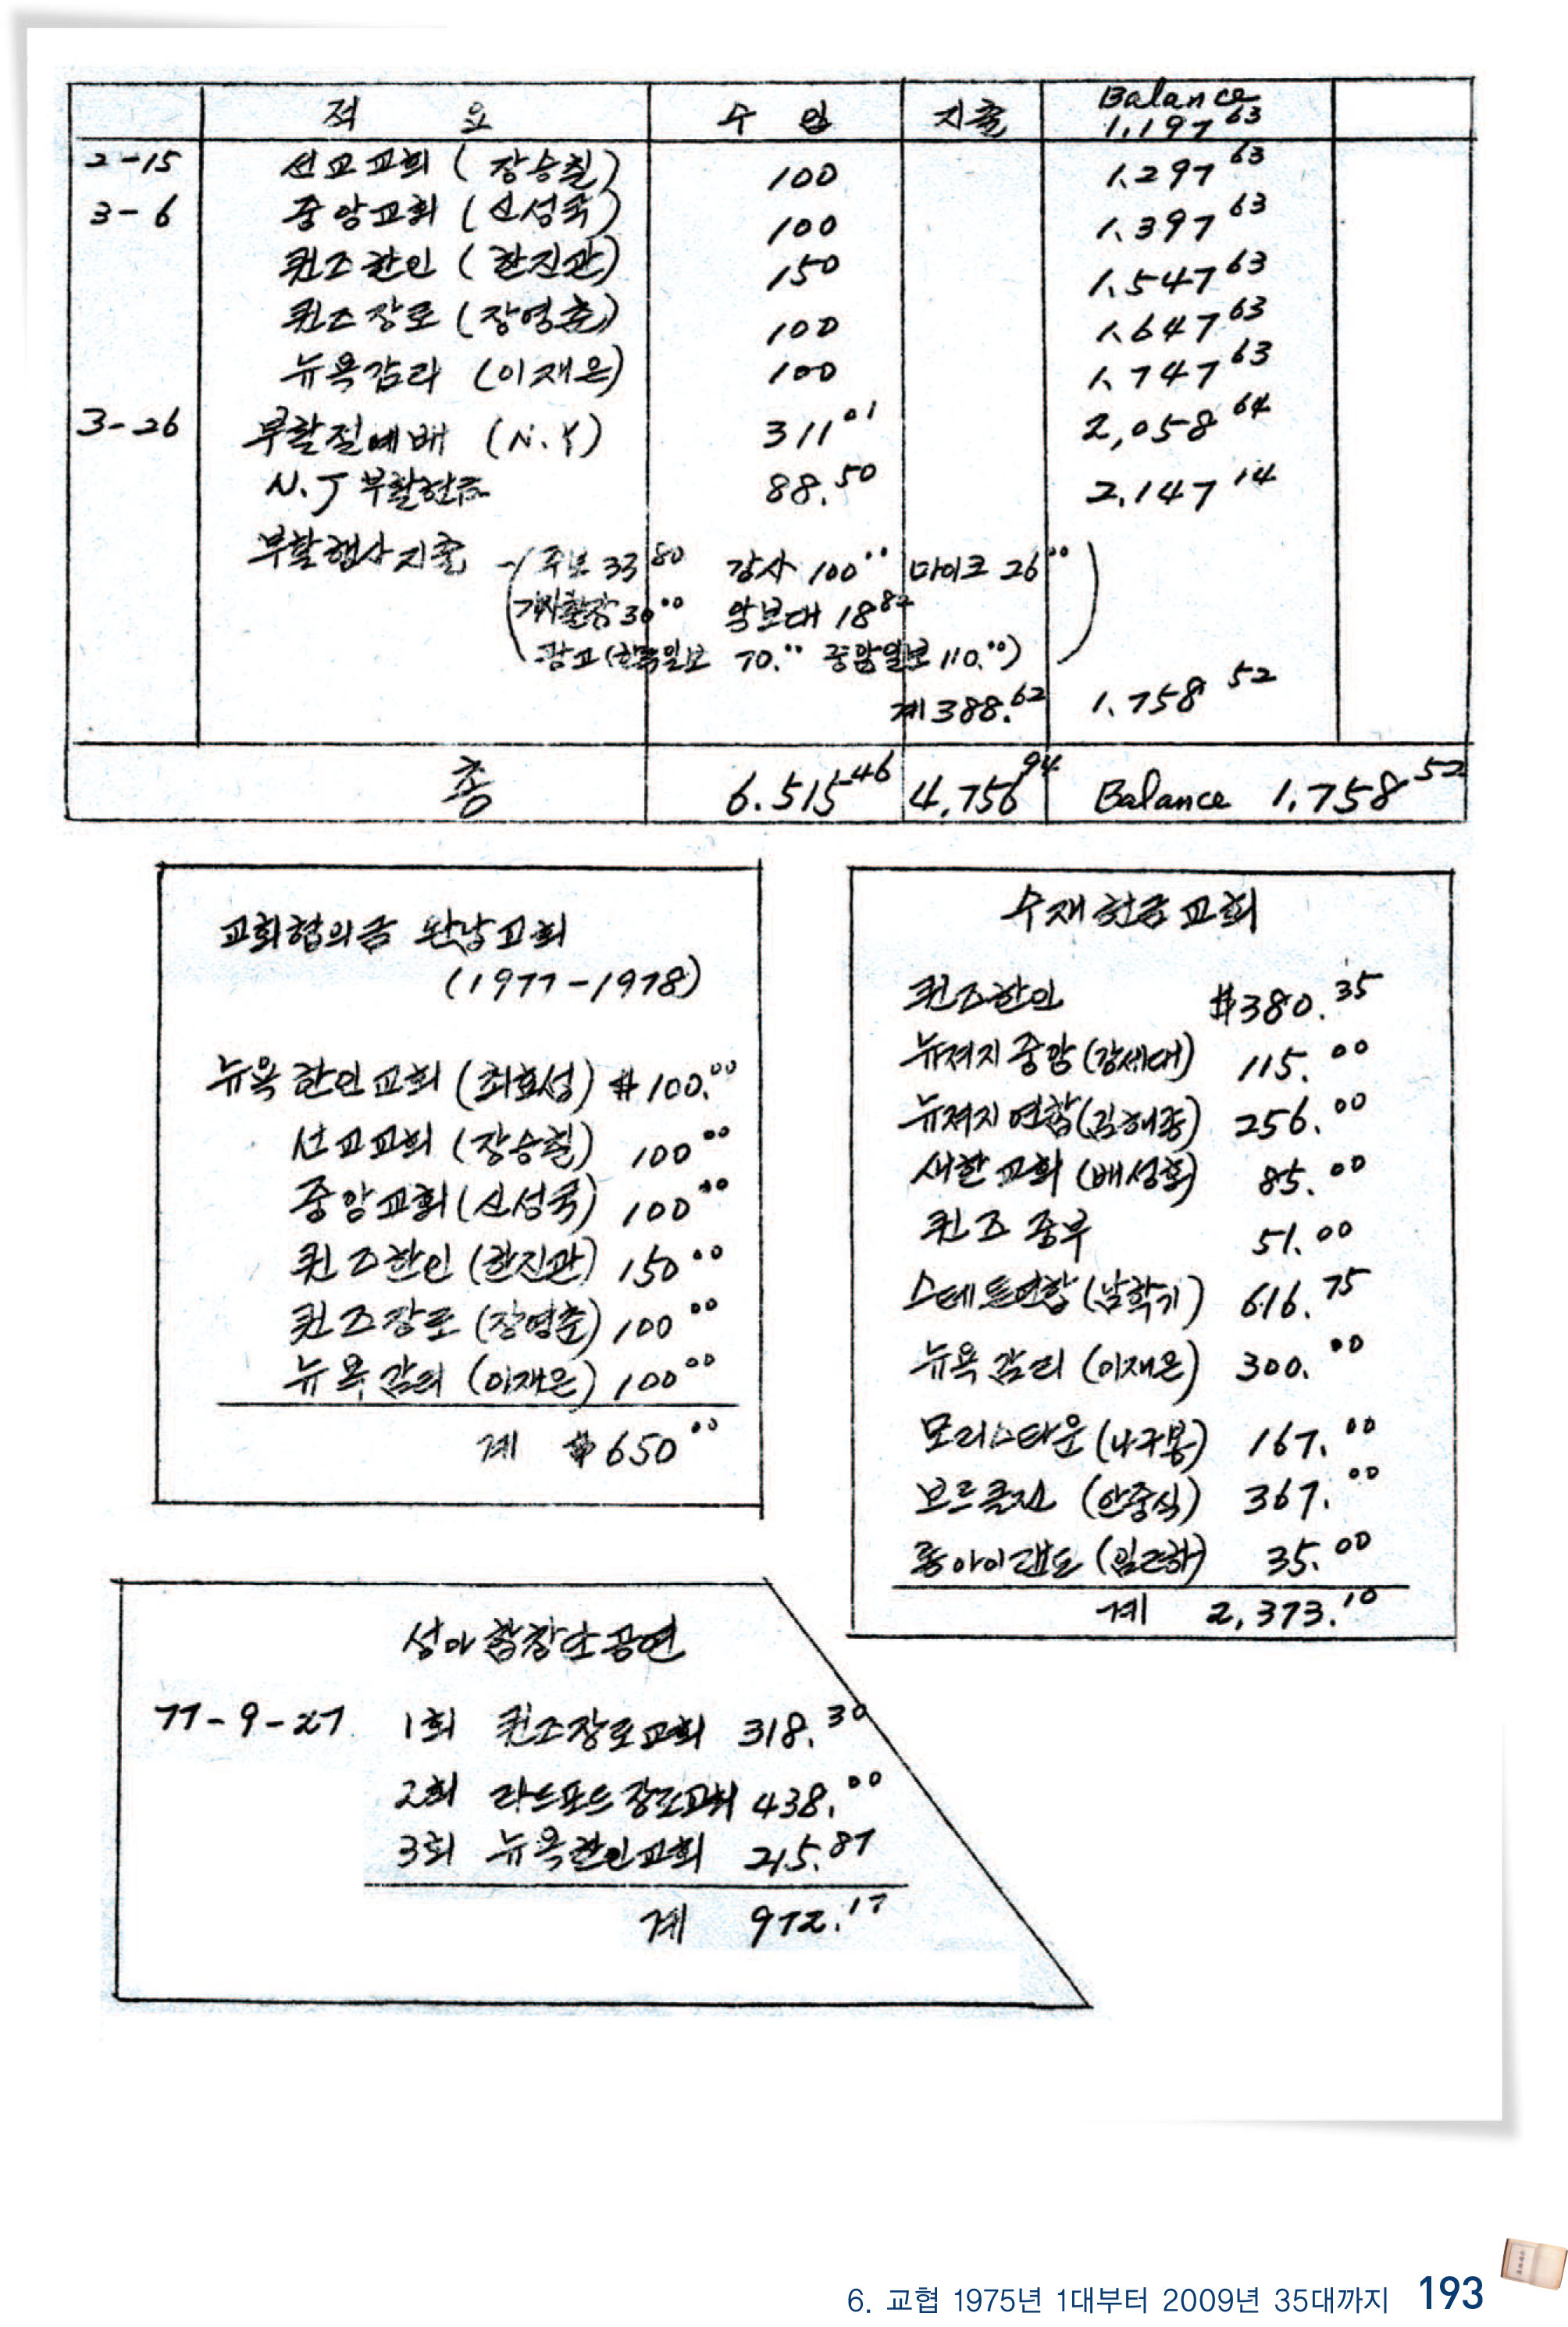 적 요 수 입 지출 Balance
1.197 63
2-15 선교교회 (장승칠) 100 1.297 63
3-6 중앙교회 (신성국) 100 1.397 63
퀸즈한인 (한진관) 150 1.547 63
퀸즈장로 (장영춘) 100 1.647 63
뉴욕감리 (이재은) 100 1.747 63
3-26 부활절예배 (N.Y) 311 01 2,058 64
N.J 부활헌금 88.50 2.147 14
부활행사지출 - 주보 33 80 강사 100 00 마이크 26 00
30 00 악보대 18 82
광고 (한국일보 70.00 중앙일보 110.00)
계 388.62 1.758 52
총 6.515 46 4,756 94 Balance 1,758 52
교회협의금 완납교회
(1977-1978)
뉴욕한인교회 (최효성) $100.00
선교교회 (장승칠) 100 00
중앙교회 (신성국) 100 00
퀸즈한인 (한진관) 150 00
퀸즈장로 (장영춘) 100 00
뉴욕감리 (이재은) 100 00
계 $650 00
수재헌금교회
퀸즈한인 $380.35
뉴져지중앙 (강세대) 115.00
뉴져지연합 (김해종) 256.00
새한교회 (배성호) 85.00
퀸즈중부 51.00
스테튼연합 (남학기) 616.75
뉴욕감리 (이재은) 300.00
모리스타운 (나구봉) 167.00
브르클린 (안중식) 367.00
롱아이랜드 35.00
계 2,373.10
성아합창단공연
77-9-27 1회 퀸즈장로교회 318.30
2회 라드포드장로교회 438.00
3회 뉴욕한인교회 215.87
계 972.17
6. 교협 1975년 1대부터 2009년 35대까지 193